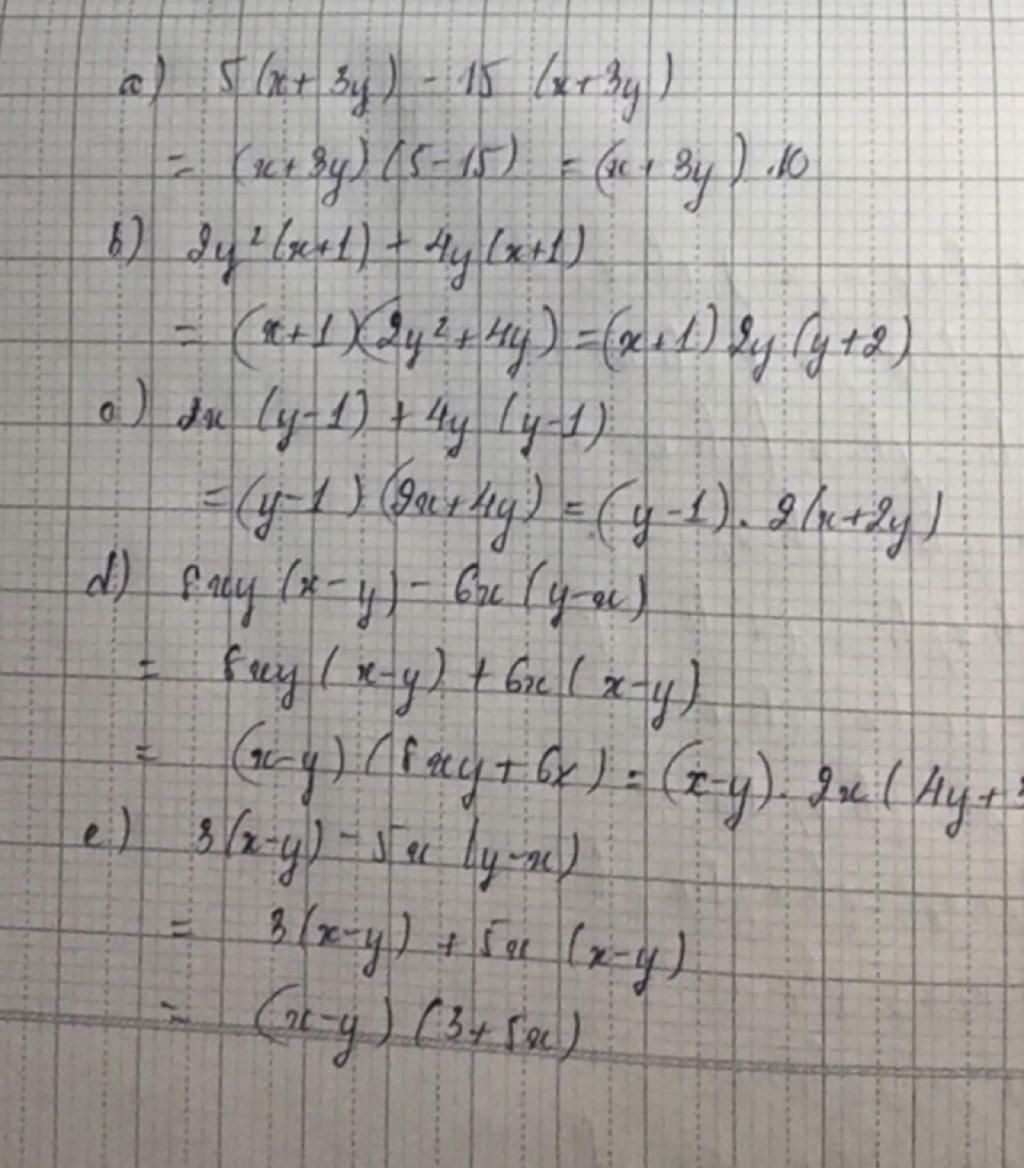 a) 5(x+3y) - 15 (x+3y)
= (x+3y)(5-15) = (x+3y).10
b) 2y²(x+1) + 4y(x+1)
= (x+1)(2y²+4y) = (x+1)2y(y+2)
c) 2x (y-1) + 4y (y-1)
= (y-1)(2x+4y) = (y-1). 2(x+2y)
d) 8xy (x-y) - 6x (y-x)
= 8xy (x-y) + 6x (x-y)
= (x-y)(8xy+6x) = (x-y). 2x(4y+3
e) 3(x-y) - 5x (y-x)
= 3(x-y) + 5x (x-y)
= (x-y)(3+5x)